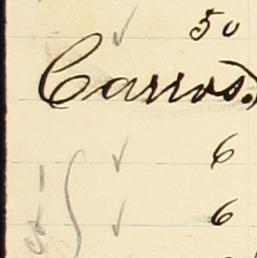 50
Carros.
6
6